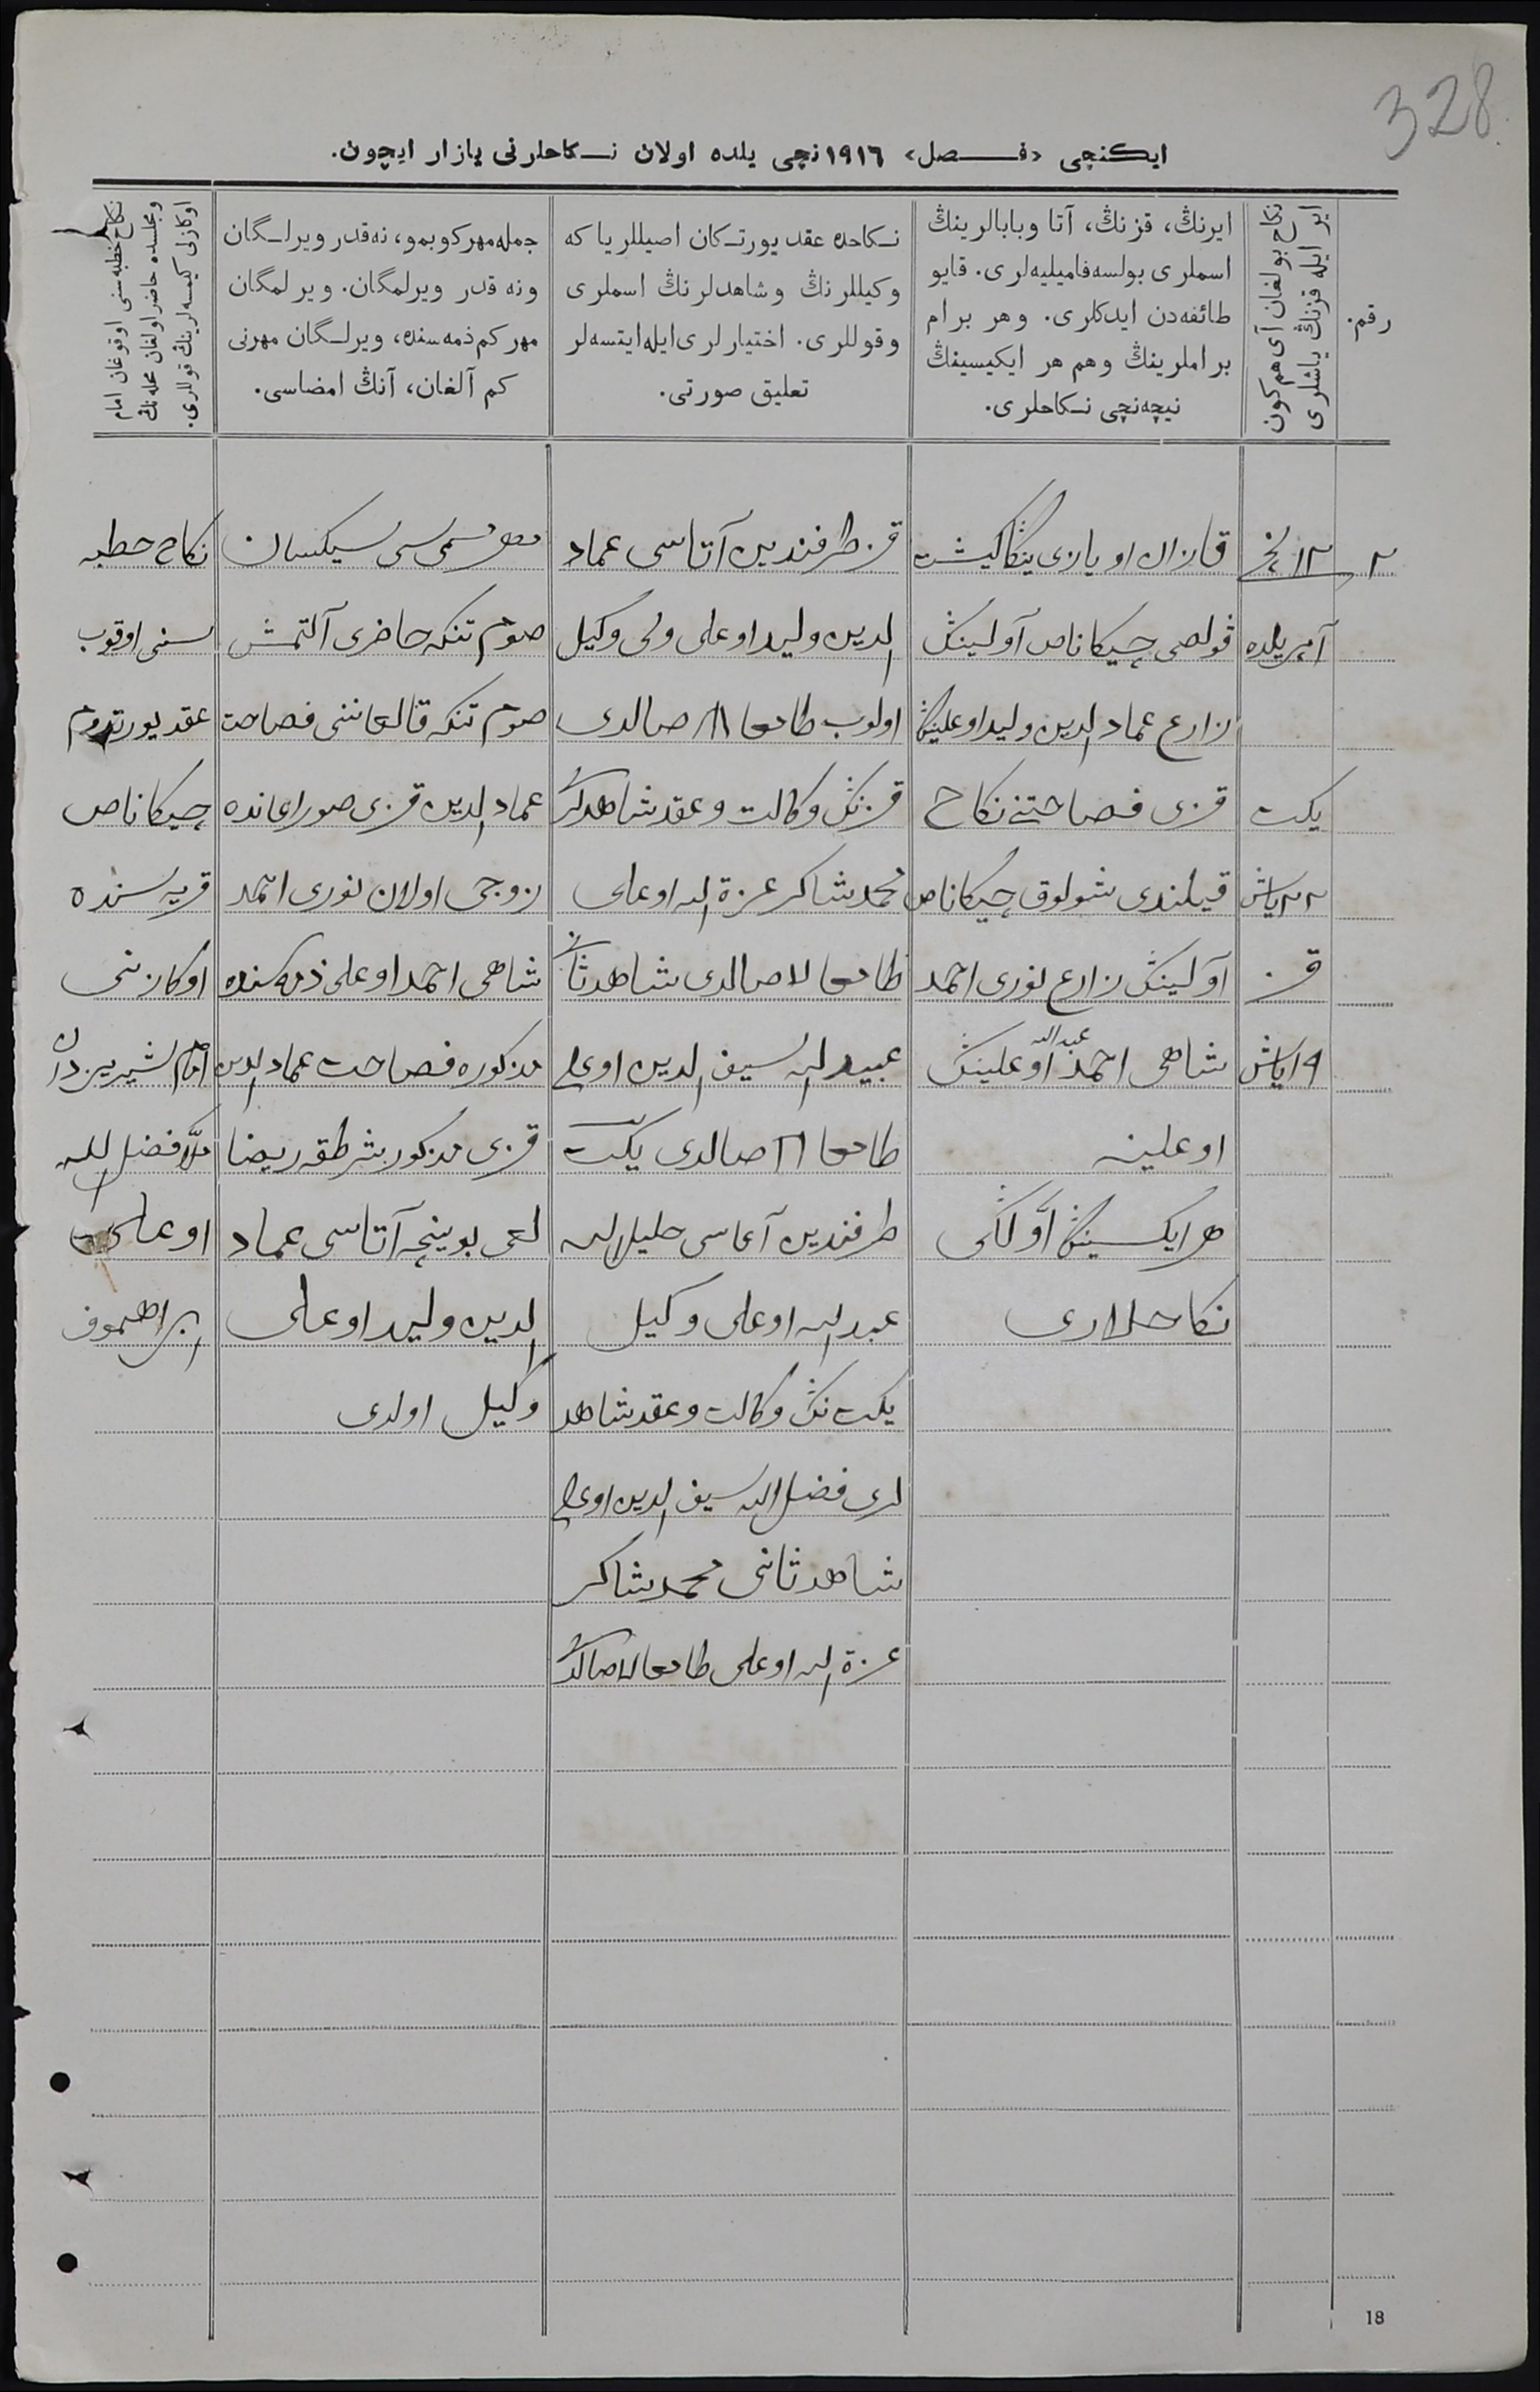 328
ایکنچی «فصل» ١٩١٦نچی یلده اولان نکاحلرنی یازار ایچون.
رقم.
نکاح بولغان آی هم کون
ایر ایله قزنڭ یاشلری
ایرنڭ، قزنڭ، آتا وبابالرینڭ
اسملری بولسه فامیلیه‌لری. قایو
طائفه‌دن ایدکلری. وهر برام
براملرینڭ وهم هر ایکیسینڭ
نیچه‌نچی نکاحلری.
نکاحده عقد یورتکان اصیللر یا که
وکیللرنڭ وشاهدلرنڭ اسملری
وقوللری. اختیارلری ایله ایتسه‌لر
تعلیق صورتی.
جمله مهر کوبمو، نه‌قدر ویرلگان
ونه قدر ویرلمگان. ویرلمگان
مهر کم ذمه‌سنده، ویرلگان مهرنی
کم آلغان، آنڭ امضاسی.
نکاح خطبه‌سنی اوقوغان امام
ومجلسده حاضر اولغان محله‌نڭ
اوکازلی کیمسه‌لرینڭ قوللری.
٢
١٣نچی
آپریلده
یکت
٢٣ یاش
قز
١٩ یاش
قازان اویازی ینکا کیشت
ڤولصی چیکاناص آولینڭ
زارع عماد الدین ولید اوغلینڭ
قزی فصاحتنی نکاح
قیلندی شولوق چیکاناص
آولینڭ زارع نوری احمد
شاهی احمد عبدالله اوغلینڭ
اوغلینه
هر ایکسینڭ اوّلگی
نکاحلاری
قز طرفندین آتاسی عماد
الدین ولید اوغلی ولی وکیل
اولوب طامغا صالدی
قزنڭ وکالت وعقد شاهدلری
محمد شاکر عزة الله اوغلی
طامغا صالدی شاهد ثانی
عبید الله سیف الدین اوغلی
طامغا صالدی یکت
طرفندین آغاسی خلیل الله
عبد الله اوغلی وکیل
یکت نڭ وکالت وعقد شاهد
لری فضل الله سیف الدین اوغلی
شاهد ثانی محمد شاکر
عزة الله اوغلی طامغا صالدی
مهر مسمی سی سیکسان
صوم تنکه حاضری آلتمش
صوم تنکه قالغاننی فصاحت
عماد الدین قزی صوراغانده
زوجی اولان نوری احمد
شاهی احمد اوغلی ذمه‌سنده
مذکوره فصاحت عماد الدین
قزی مذکور شرطقه ریضا
لغی بوینچه آتاسی عماد
الدین ولید اوغلی
وکیل اولدی
نکاح خطبه
سنی اوقوب
عقد یورتدوم
چیکاناص
قریه سنده
اوکازنی
امام شیریزدان
ملّا فضل الله
اوغلی
ابراهموف
18